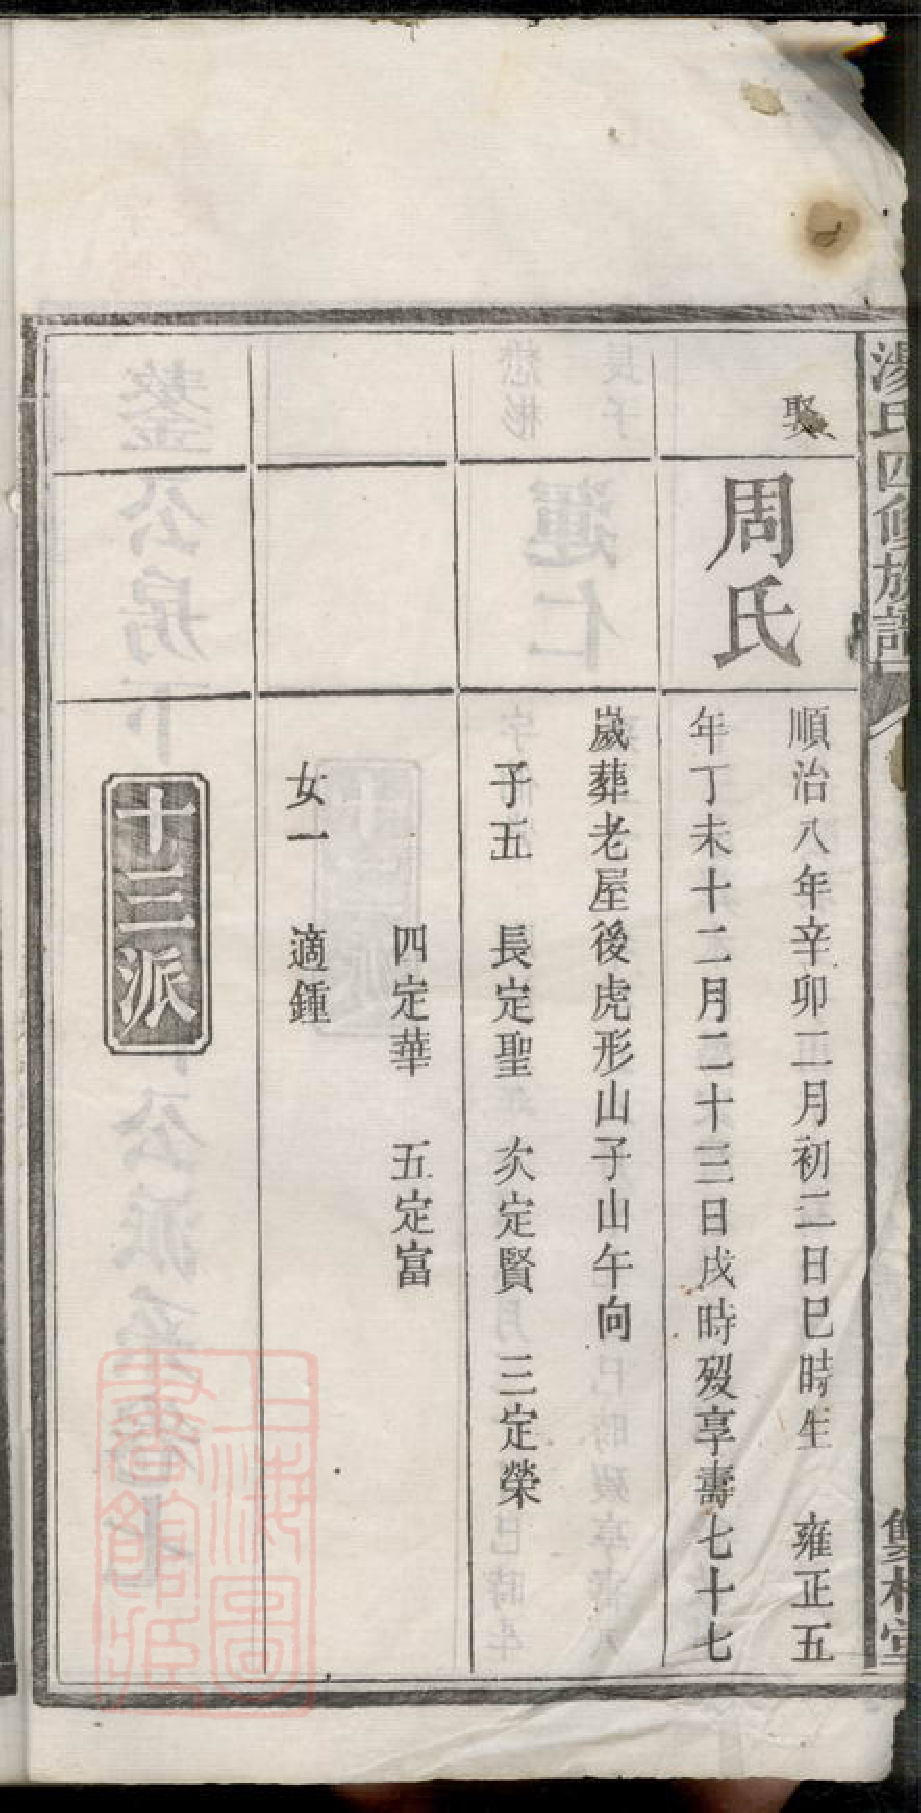 湯氏四修族譜
雙桂堂
娶
周氏
順治八年辛卯二月初二日巳時生 雍正五
年丁未十二月二十三日戌時歿享壽七十七
歲葬老屋後虎形山子山午向
子五 長定聖 次定賢 三定榮
四定華 五定富
女一 適鍾
十三派
上海圖書館藏